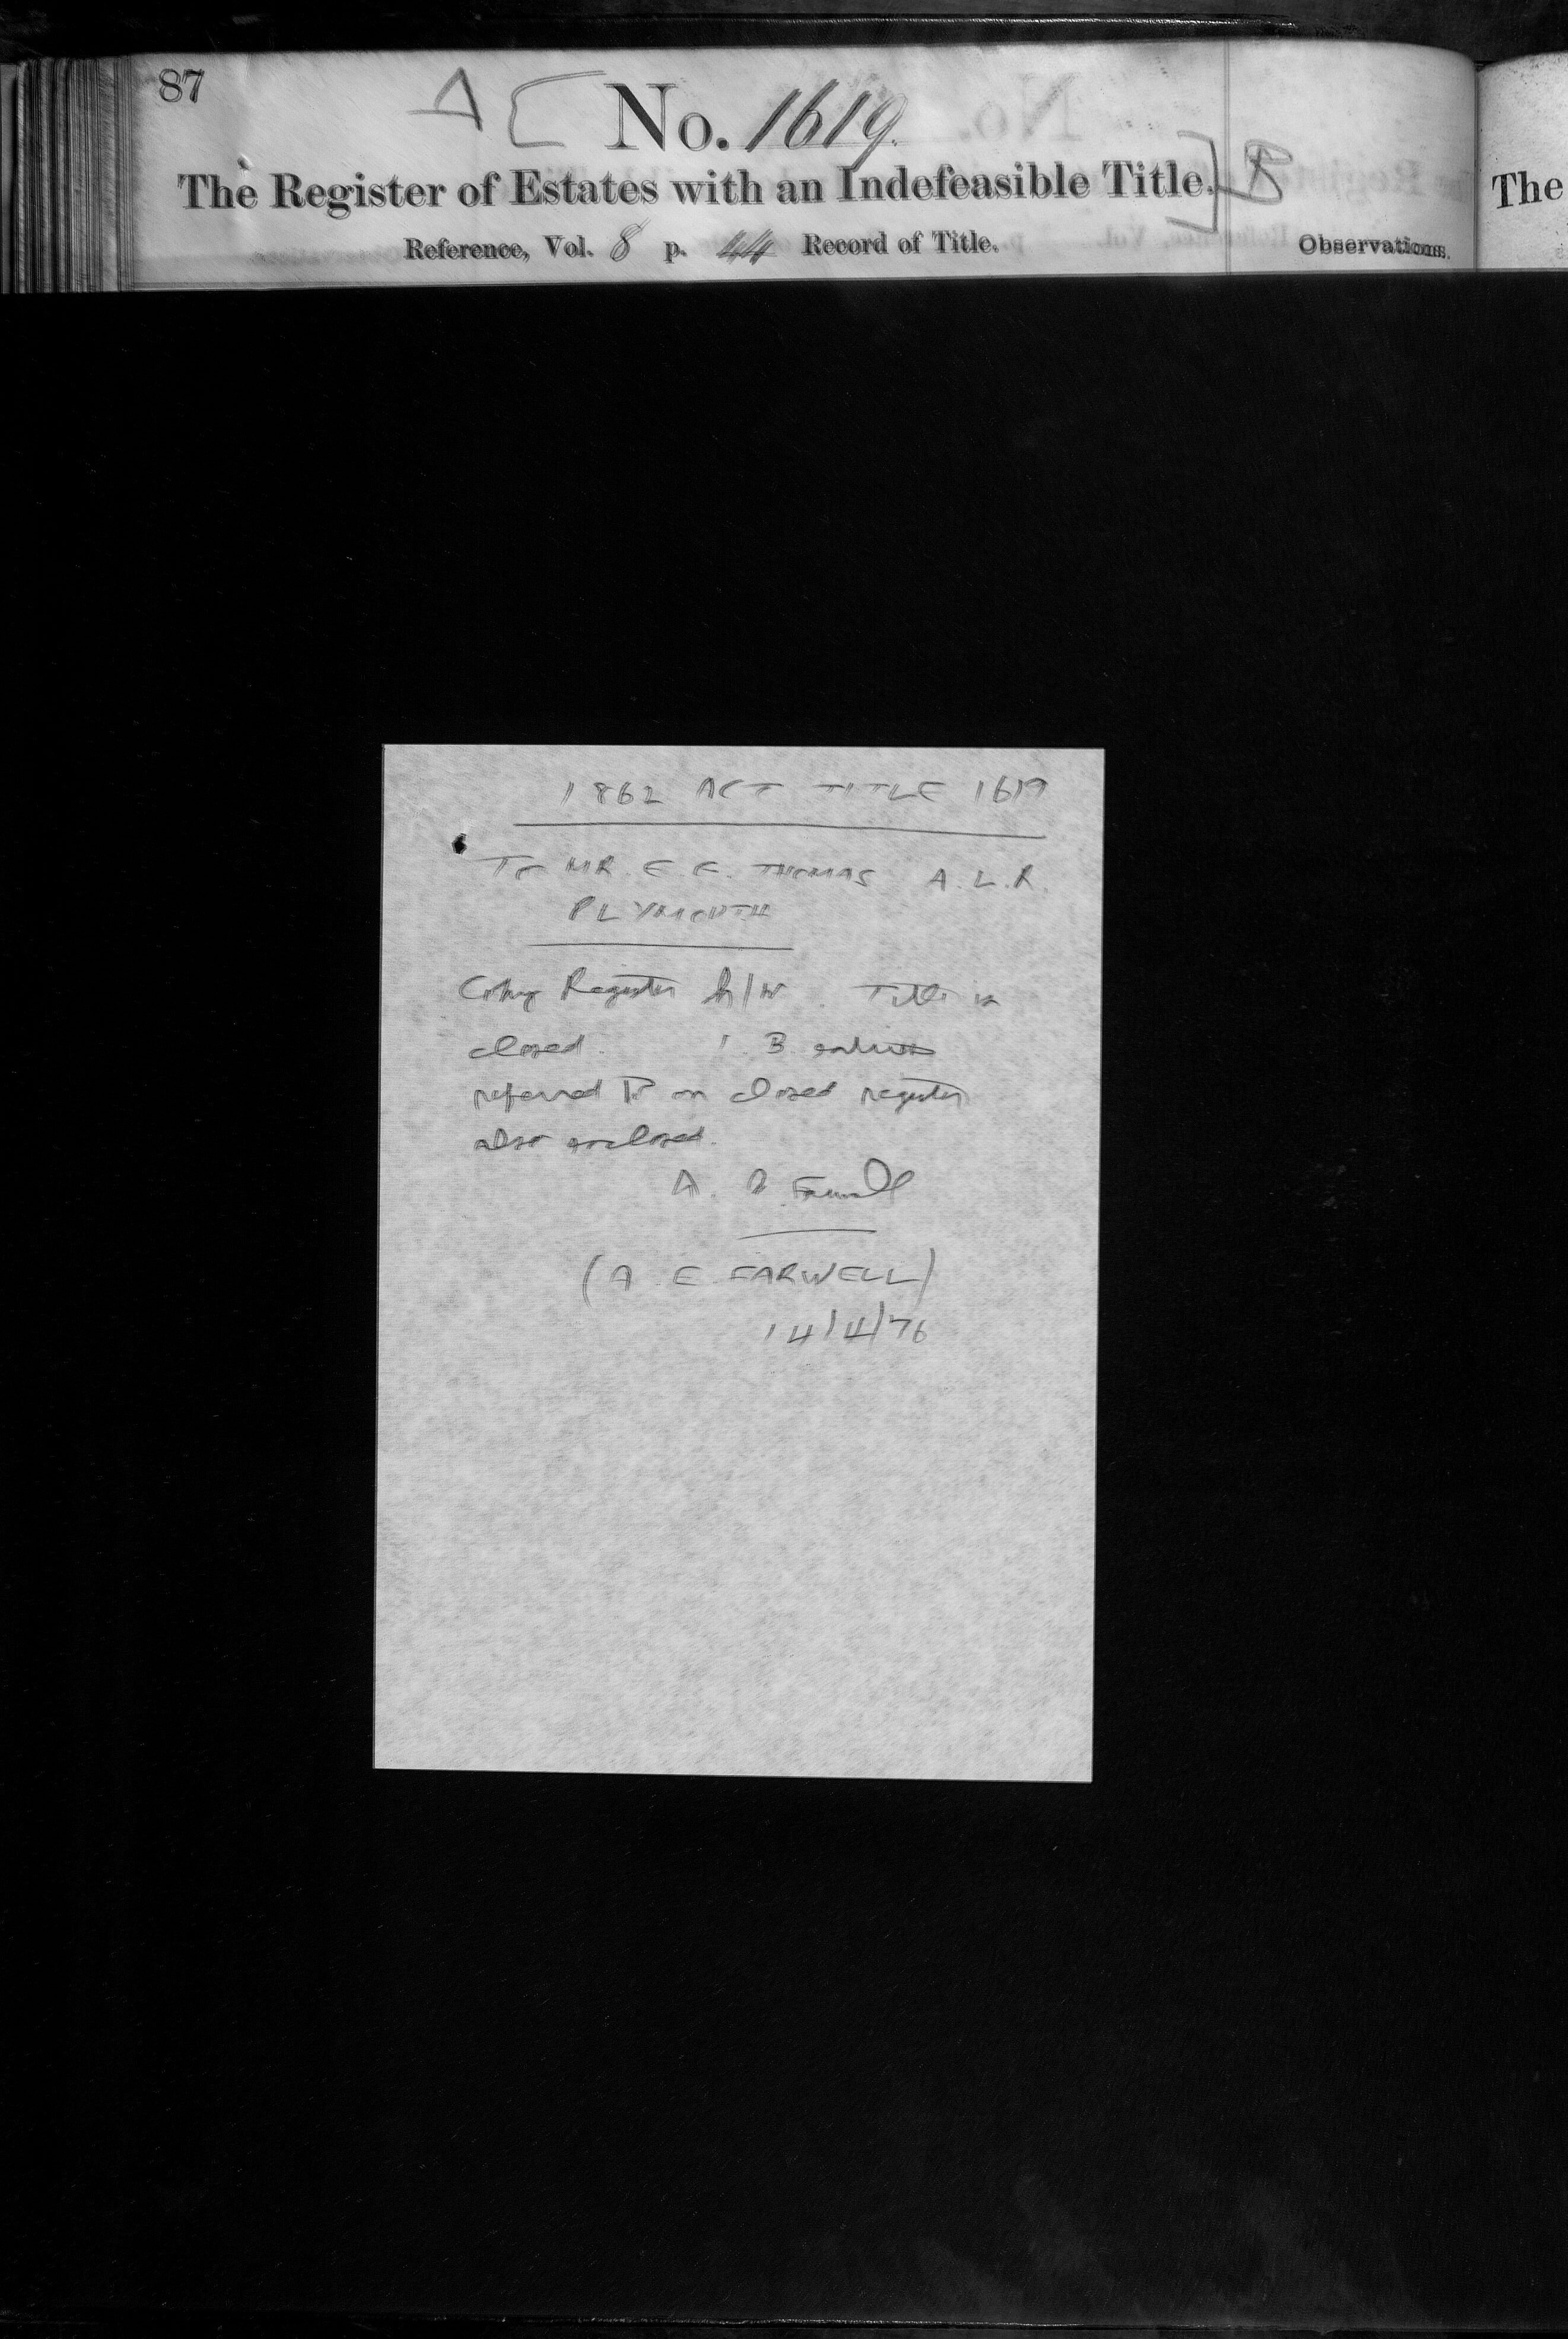 87
A [ No. 1619.
The Register of Estates with an Indefeasible Title. ] B
Reference, Vol. 8 p. 44 Record of Title.
Observations.
The
1862 ACT TITLE 1619
To MR. E. E. THOMAS A.L.R.
PLYMOUTH
Copy Register h/w. Title is
closed. B entries
referred to on closed register
also enclosed.
A. E Farwell
(A. E. FARWELL)
14/4/76